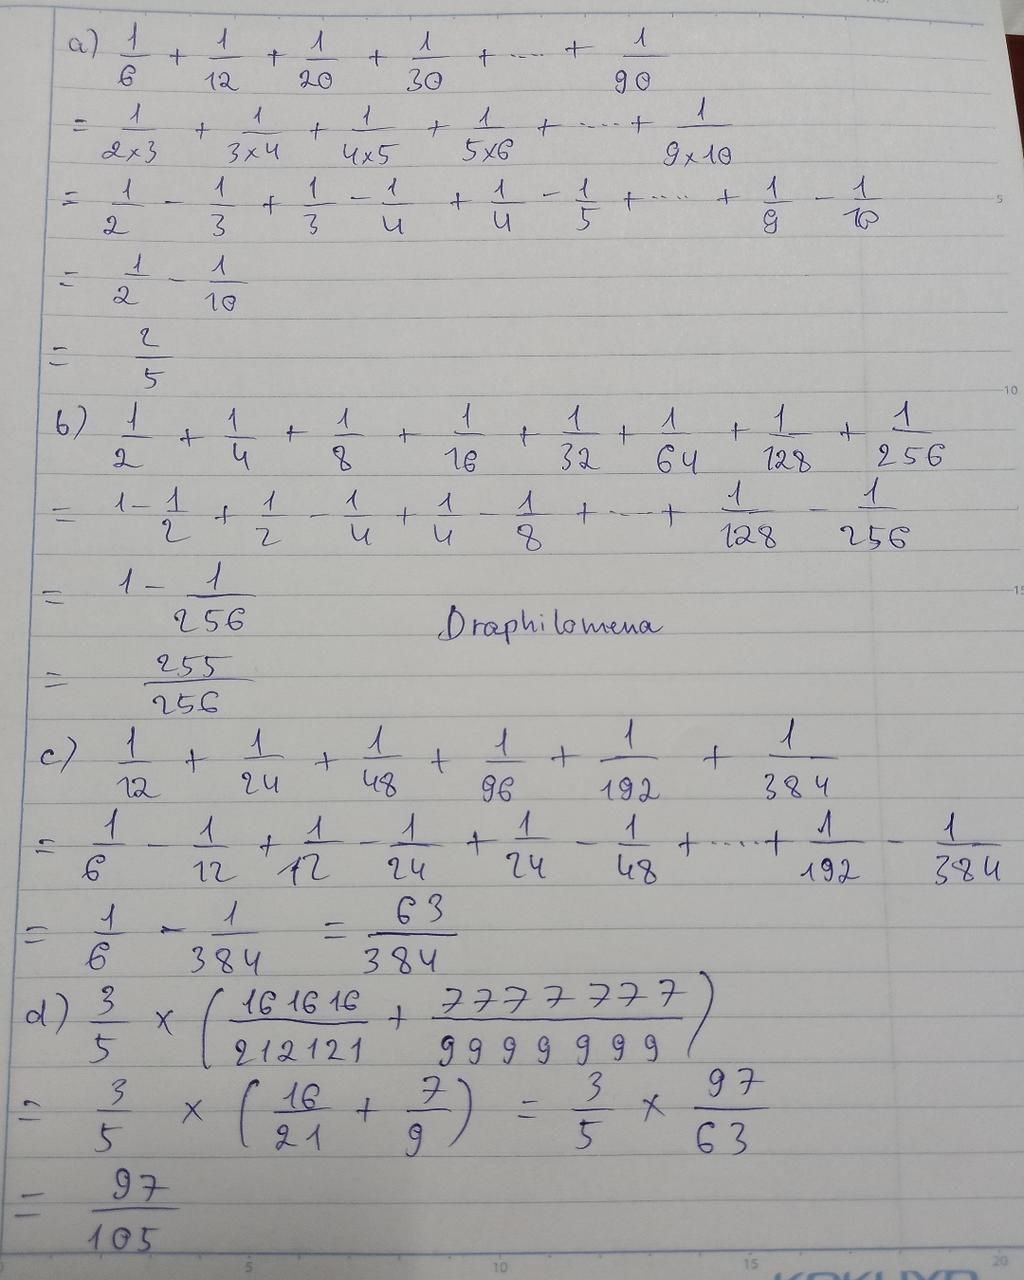 a) 1/6 + 1/12 + 1/20 + 1/30 + .... + 1/90
= 1/2×3 + 1/3×4 + 1/4×5 + 1/5×6 + ....+ 1/9×10
= 1/2 - 1/3 + 1/3 - 1/4 + 1/4 - 1/5 + .... + 1/9 - 1/10
5
= 1/2 - 1/10
= 2/5
10
b) 1/2 + 1/4 + 1/8 + 1/16 + 1/32 + 1/64 + 1/128 + 1/256
= 1 - 1/2 + 1/2 - 1/4 + 1/4 - 1/8 + ....+ 1/128 - 1/256
= 1 - 1/256
15
Draphilomena
= 255/256
c) 1/12 + 1/24 + 1/48 + 1/96 + 1/192 + 1/384
= 1/6 - 1/12 + 1/12 - 1/24 + 1/24 - 1/48 + .....+ 1/192 - 1/384
= 1/6 - 1/384 = 63/384
d) 3/5 × (161616/212121 + 7777777/9999999)
= 3/5 × (16/21 + 7/9) = 3/5 × 97/63
= 97/105
5 10 15 20
KOKUYO